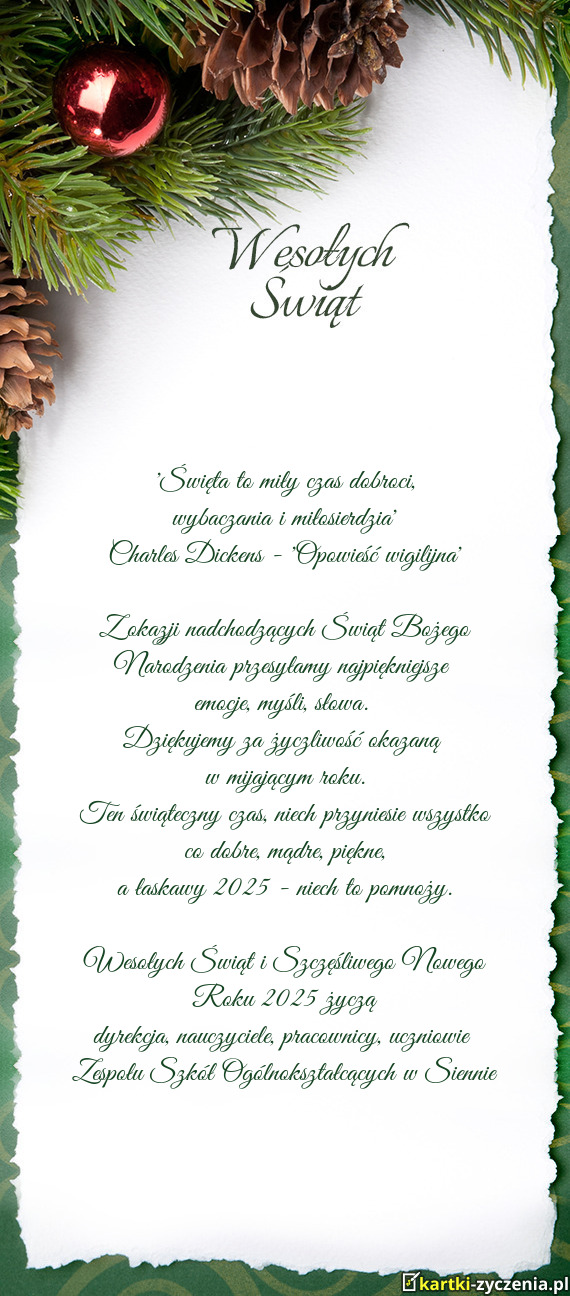 Wesołych
Świąt
'Święta to miły czas dobroci,
wybaczania i miłosierdzia'
Charles Dickens - 'Opowieść wigilijna'
Z okazji nadchodzących Świąt Bożego
Narodzenia przesyłamy najpiękniejsze
emocje, myśli, słowa.
Dziękujemy za życzliwość okazaną
w mijającym roku.
Ten świąteczny czas, niech przyniesie wszystko
co dobre, mądre, piękne,
a łaskawy 2025 - niech to pomnoży.
Wesołych Świąt i Szczęśliwego Nowego
Roku 2025 życzą
dyrekcja, nauczyciele, pracownicy, uczniowie
Zespołu Szkół Ogólnokształcących w Siennie
kartki-zyczenia.pl